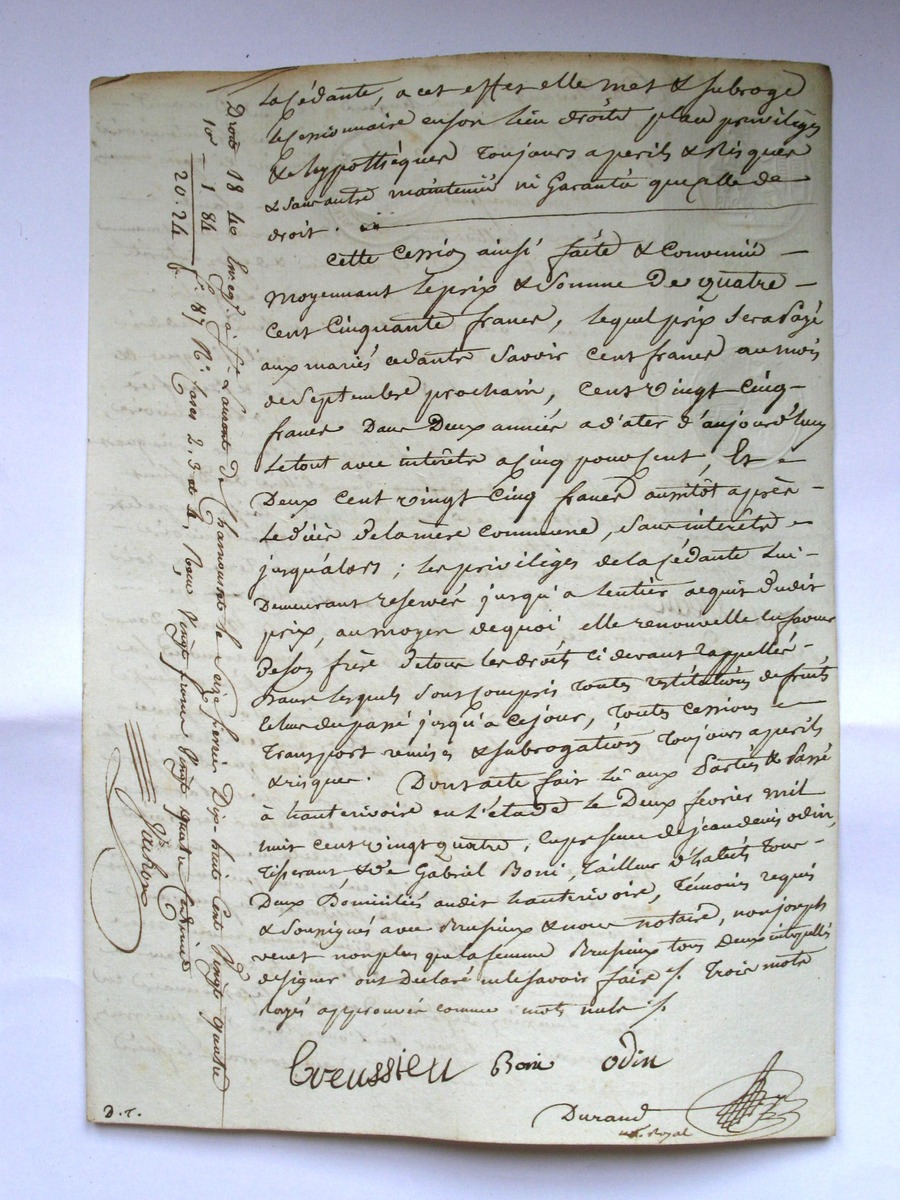 la Cédante, a cet effet elle met & subroge
le cessionnaire en son lieu droits place privilèges
& hypothèques toujours a perils & Risques
& sans autre maintenüe ni Garantie que celle de
droit.
Cette Cession ainsi faite & Convenüe
moyennant le prix & Somme De quatre
Cent Cinquante francs, lequel prix sera Payé
aux mariés cedants Savoir Cent francs au mois
de Septembre prochain, Cent vingt cinq
francs Dans Deux années a d'ater d'aujourd'huy
Le tout avec intérêts a Cinq pour cent, Et
Deux cent vingt Cinq francs aussitôt après
Le décès de la mère commune, sans intérêts
jusqu'alors; les privilèges de la Cédante Lui
Demeurant reservés jusqu'a lentier acquit dudit
prix, au moyen de quoi elle renouvelle en faveur
De son frère de tous les droits ci devant rappellés
Dans lesquels sont compris toutes restitutions de fruits
du passé jusqu'a ce jour, Toutes Cessions
Transport remises & subrogations Toujours a perils
& risques. Dont acte fait lû aux Parties & Passé
à hauterivoire en L'étude le Deux fevrier mil
huit cent vingt quatre, En présence de jean denis odin,
Tisserant, & de Gabriel Boni, Tailleur d'habits Tous
Deux Domiciliés audit hauterivoire, Témoins requis
& Soussignés avec Brusieux & nous notaire, non joseph
venet non plus que la femme Brusieux tous Deux interpellés
de signer ont Déclaré ne le savoir faire /. Trois mots
rayés approuvés comme mots nuls /.
Creussieu Boni odin
Durand
not. Royal
D. T.
Droits 18 40
10e 1 84
20. 24 f.
Enregé. à St. Laurent De Chamousset le seize fevrier Dix-huit Cent Vingt quatre
f. 87 No. Cases 2. 3 et 4, Reçu Vingt francs Vingt quatre Centimes